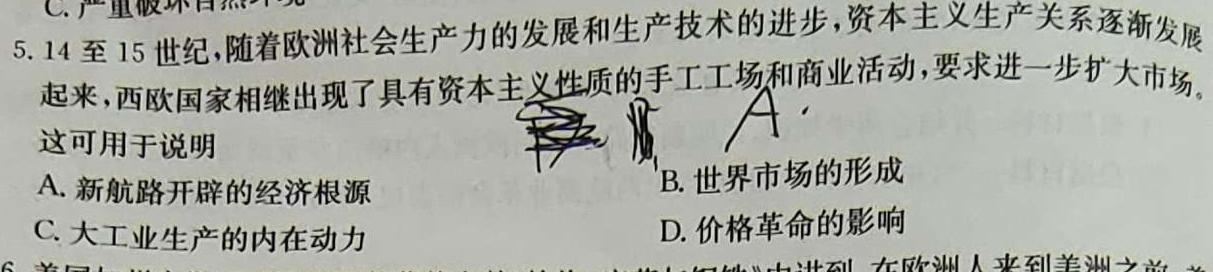 C. 严重破坏自然环境
5. 14 至 15 世纪,随着欧洲社会生产力的发展和生产技术的进步,资本主义生产关系逐渐发展
起来,西欧国家相继出现了具有资本主义性质的手工工场和商业活动,要求进一步扩大市场。
这可用于说明
A
A. 新航路开辟的经济根源 B. 世界市场的形成
C. 大工业生产的内在动力 D. 价格革命的影响
6. 美国 中讲到,在欧洲人来到美洲之前